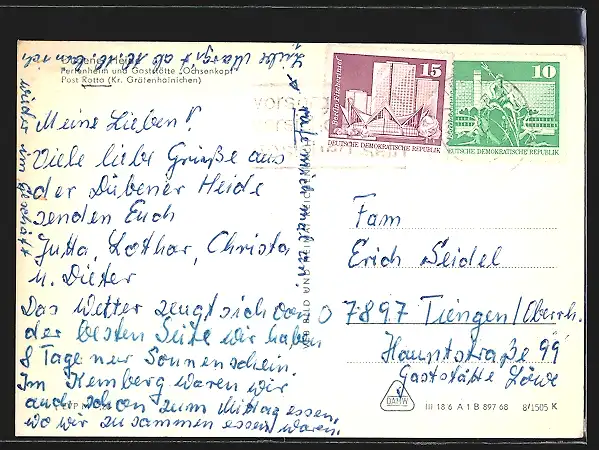 Dübener Heide
Ferienheim und Gaststätte „Ochsenkopf“
Post Rotta (Kr. Gräfenhainichen)
Liebe Margit ab 16.10. bin ich
wieder im Geschäft
ruf mich mal an.
Meine Lieben!
Viele liebe Grüße aus
der Dübener Heide
senden Euch
Jutta, Lothar, Christa
u. Dieter
Das Wetter zeugt sich von
der besten Seite wir haben
8 Tage nur Sonnenschein.
Im Kemberg waren wir
auch schon zum Mittagessen,
wo wir zusammen essen waren.
15
Berlin-Fischerinsel
DEUTSCHE DEMOKRATISCHE REPUBLIK
10
DEUTSCHE DEMOKRATISCHE REPUBLIK
Fam
Erich Seidel
7897 Tiengen/Oberrh.
Hauptstraße 99
Gaststätte Löwe
DAMW
III 18 6 A 1 B 897 68 8/1505 K